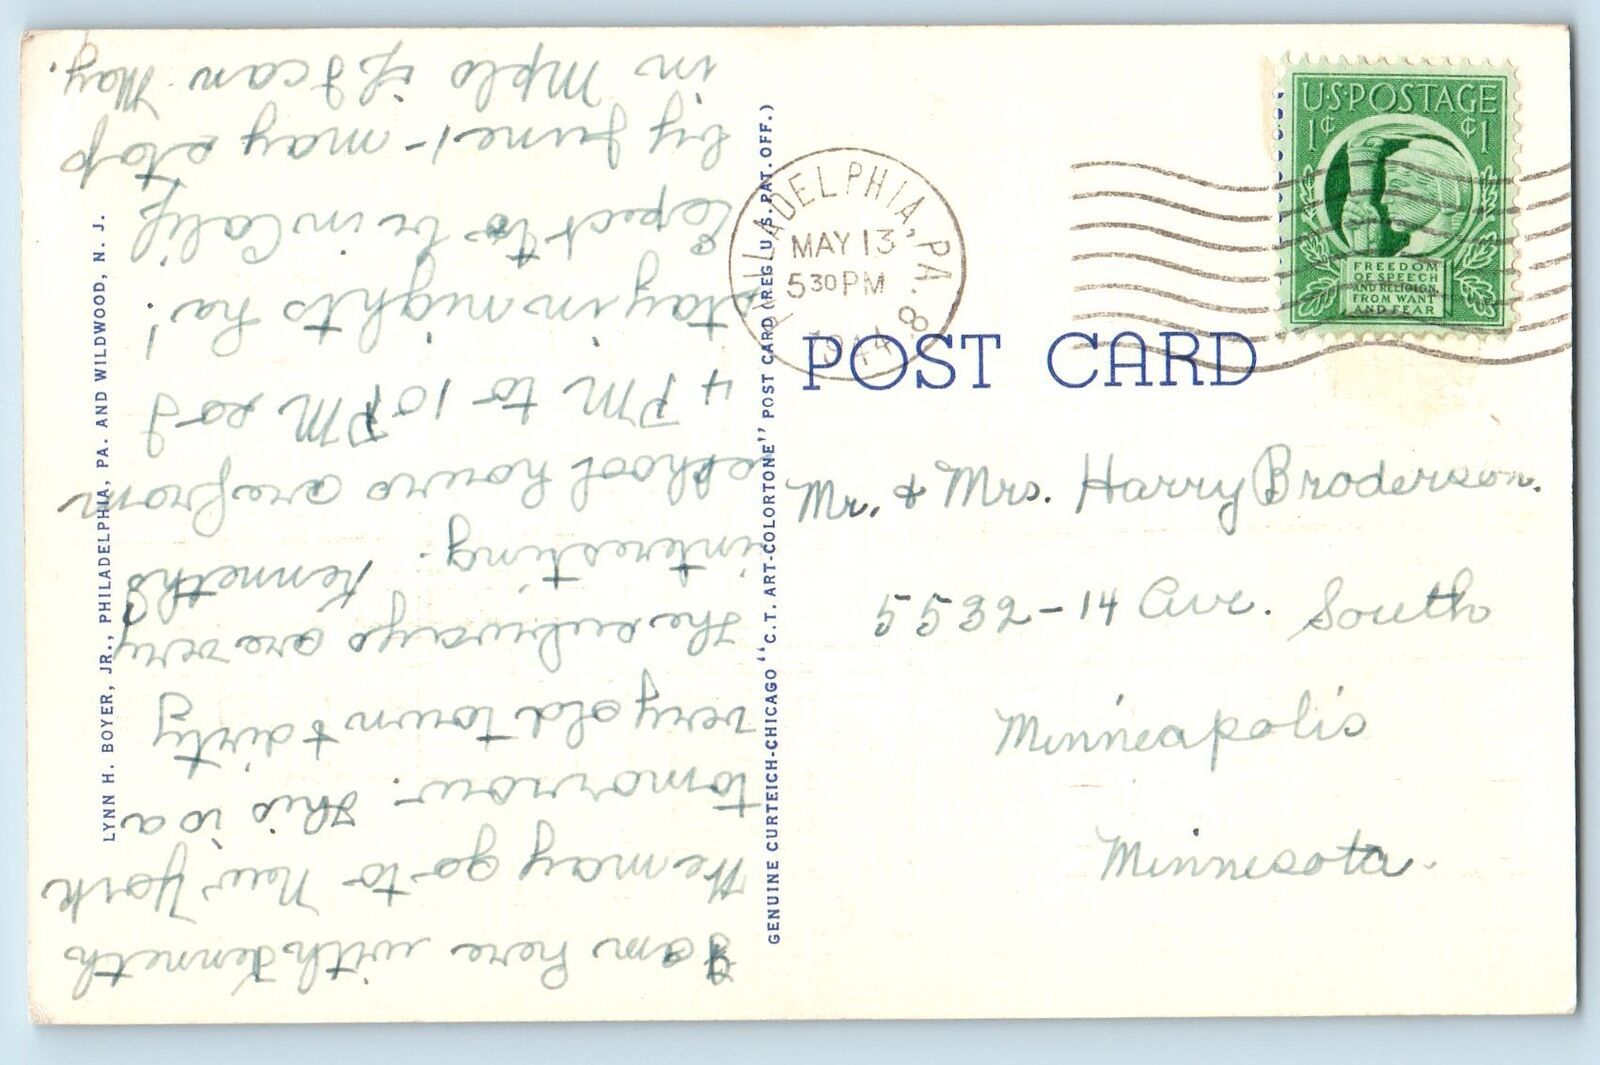 I am here with Kenneth
He may go to New York
tomorrow. This is a
very old town & dirty
The subways are very
interesting. Kenneth's
school hours are from
4 PM to 10 PM so I
stay in nights ha!
Expect to be in Calif
by June 1 - may stop
in Mpls if I can May.
LYNN H. BOYER, JR., PHILADELPHIA, PA. AND WILDWOOD, N. J.
GENUINE CURTEICH-CHICAGO "C.T. ART-COLORTONE" POST CARD (REG. U.S. PAT. OFF.)
PHILADELPHIA, PA. 8
MAY 13
5 30 PM
1944
U.S. POSTAGE
1¢ ¢1
FREEDOM
OF SPEECH
AND RELIGION,
FROM WANT
AND FEAR
POST CARD
Mr. & Mrs. Harry Broderson.
5532-14 Ave. South
Minneapolis
Minnesota.